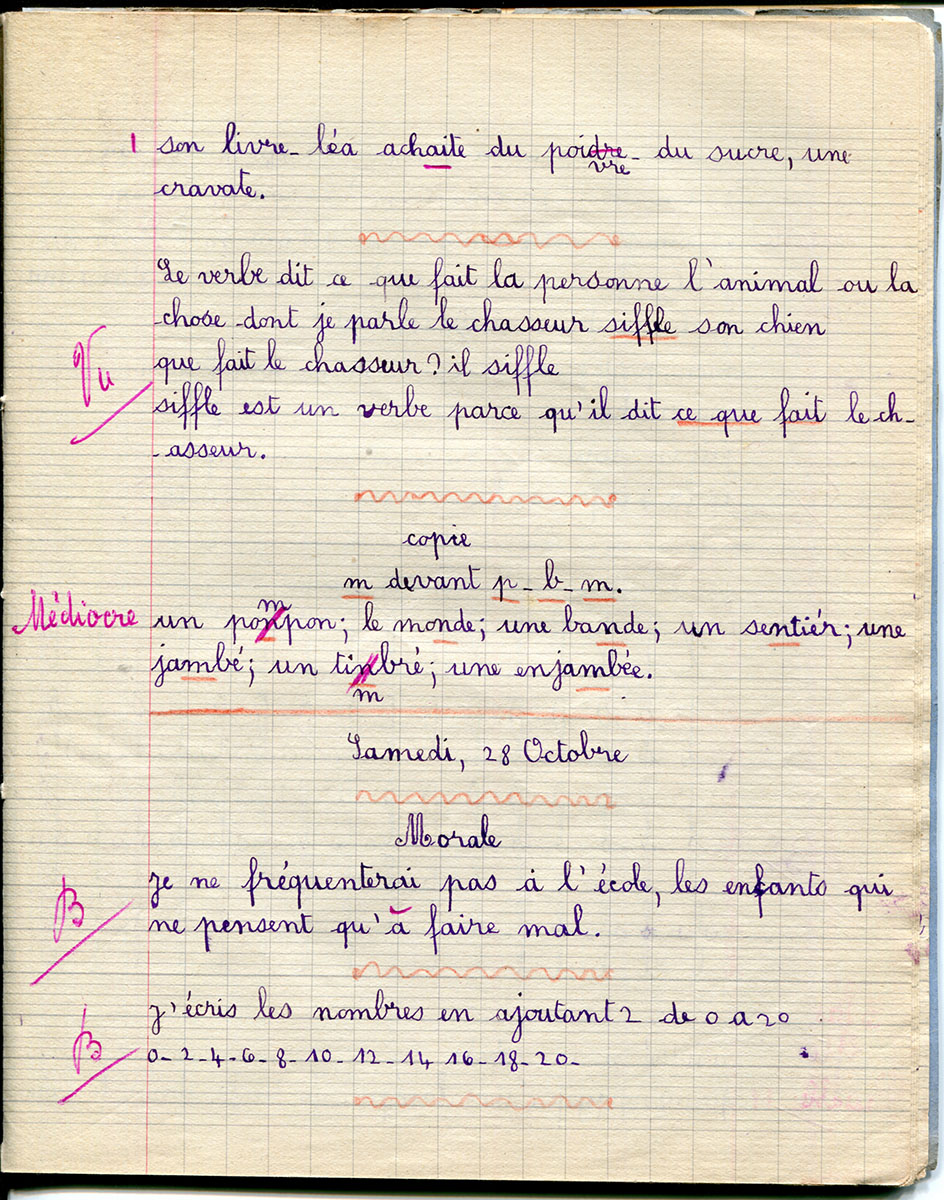 1 son livre - léa achaite du poidre - du sucre, une
vre
cravate.
Le verbe dit ce que fait la personne l'animal ou la
chose dont je parle le chasseur siffle son chien
Vu
que fait le chasseur? il siffle
siffle est un verbe parce qu'il dit ce que fait le ch-
-asseur.
copie
m devant p - b - m.
m
Médiocre un ponpon; le monde; une bande; un sentiér; une
jambé; un tinbré; une enjambée.
m
Samedi, 28 Octobre
Morale
B
je ne fréquenterai pas à l'école, les enfants qui
ne pensent qu'à faire mal.
j'écris les nombres en ajoutant 2 de 0 a 20
B
0 - 2 - 4 - 6 - 8 - 10 - 12 - 14 - 16 - 18 - 20 -